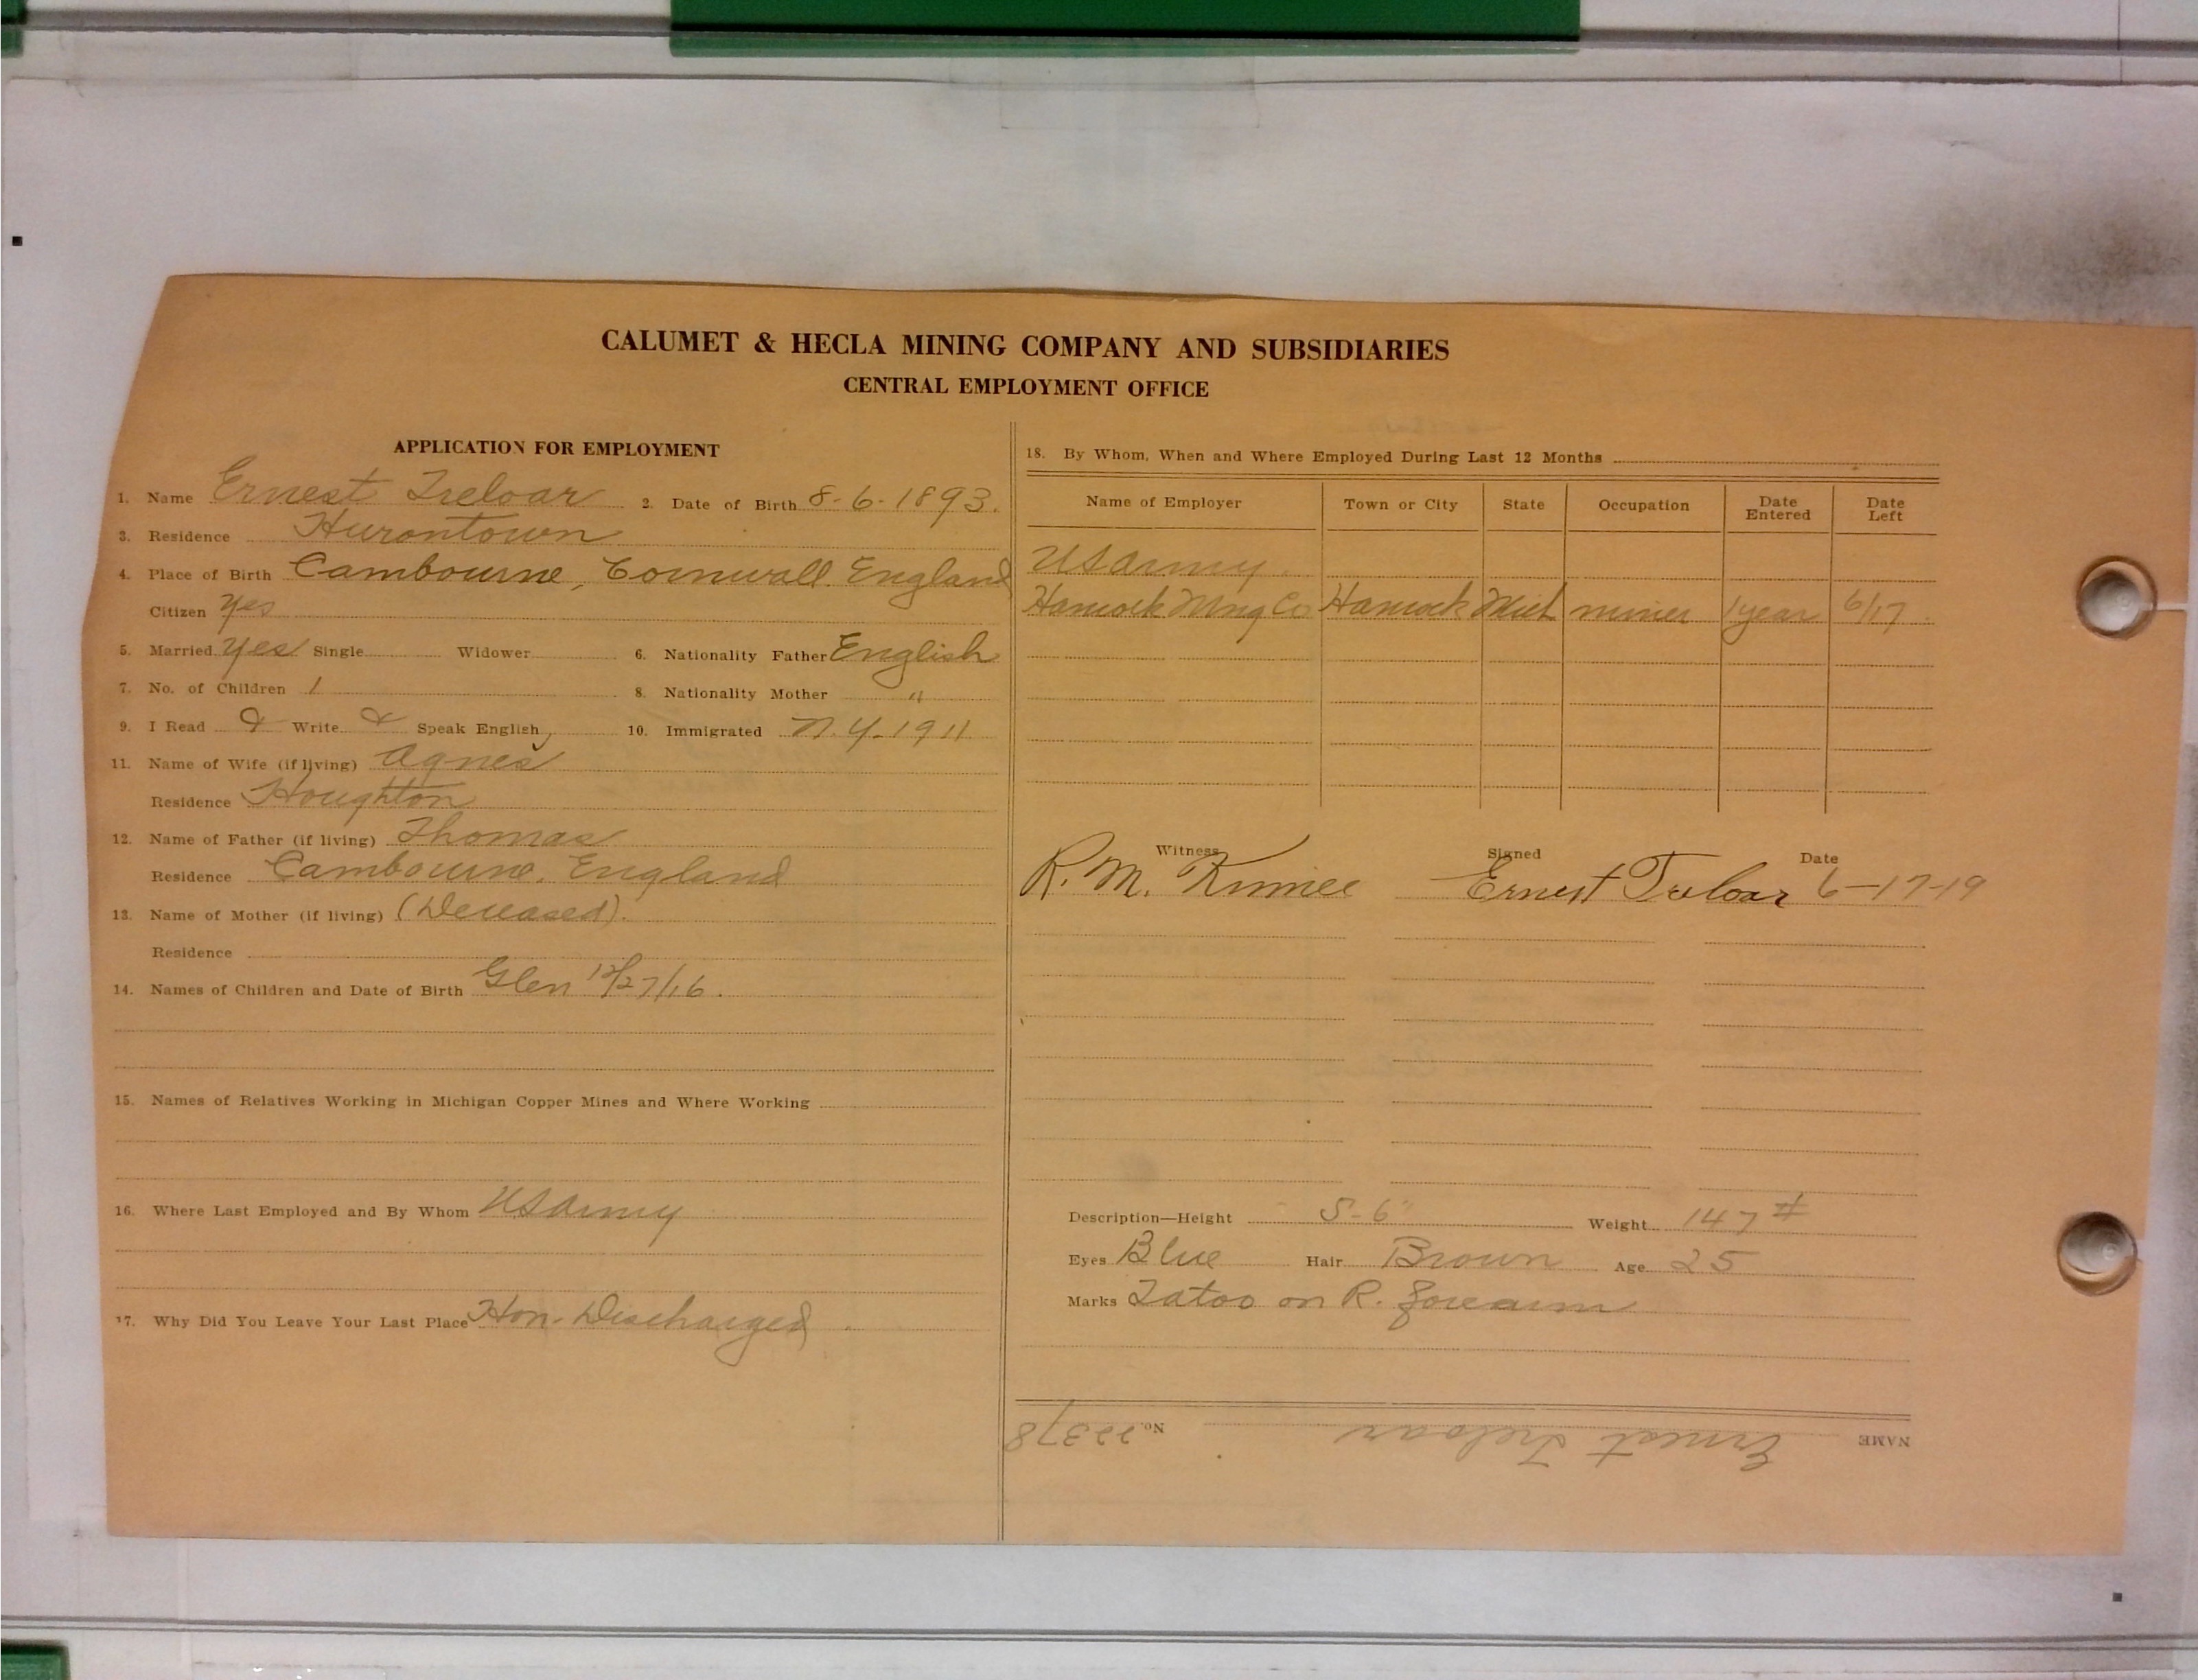 CALUMET & HECLA MINING COMPANY AND SUBSIDIARIES
CENTRAL EMPLOYMENT OFFICE
APPLICATION FOR EMPLOYMENT
1. Name Ernest Treloar 2. Date of Birth 8-6-1893.
3. Residence Hurontown
4. Place of Birth Cambourne, Cornwall England
Citizen Yes
5. Married Yes Single Widower 6. Nationality Father English
7. No. of Children 1 8. Nationality Mother "
9. I Read & Write & Speak English, 10. Immigrated N.Y.-1911
11. Name of Wife (if living) Agnes
Residence Houghton
12. Name of Father (if living) Thomas
Residence Cambourne, England
13. Name of Mother (if living) (Deceased).
Residence
14. Names of Children and Date of Birth Glen 12/27/16.
15. Names of Relatives Working in Michigan Copper Mines and Where Working
16. Where Last Employed and By Whom US Army
17. Why Did You Leave Your Last Place Hon. Discharged
18. By Whom, When and Where Employed During Last 12 Months
Name of Employer Town or City State Occupation Date Entered Date Left
US Army
Hancock Mng Co Hancock Mich miner 1 year 6/17
Witness Signed Date
R. M. Ernest Treloar 6-17-19
Description—Height 5-6" Weight 147 #
Eyes Blue Hair Brown Age 25
Marks Tatoo on R. forearm
NAME Ernest Treloar No. 22378